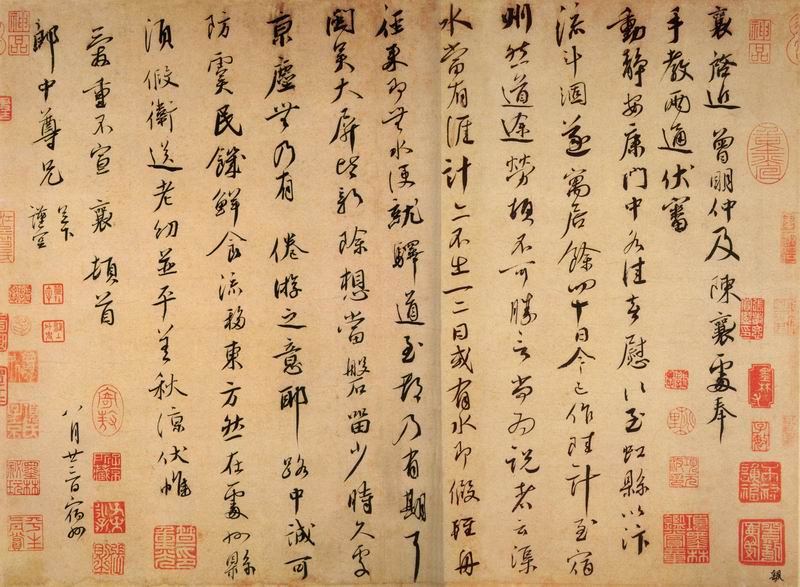 襄啟近曾明仲及陳襄處奉
手教兩通伏審
動靜安康門中各佳喜慰以至虹縣以汴
流斗涸遂寓居餘四十日今已作陸計至宿
州然道途勞頓不可勝言尚為說者云渠
水當有涯計亦不出一二日或有水即假輕舟
徑來即無水便就驛道至都乃有期耳
聞吳大屏皆新除想當磐留少時久處
京塵無乃有倦游之意耶路中誠可
防虞民饑鮮食流移東方然在處州縣
須假衛送老幼並平善秋涼伏惟
愛重不宣襄頓首
郎中尊兄
足下
謹空
八月廿三日宿州
神品